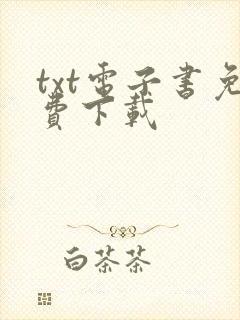 txt電子書免
費下載
白茶茶